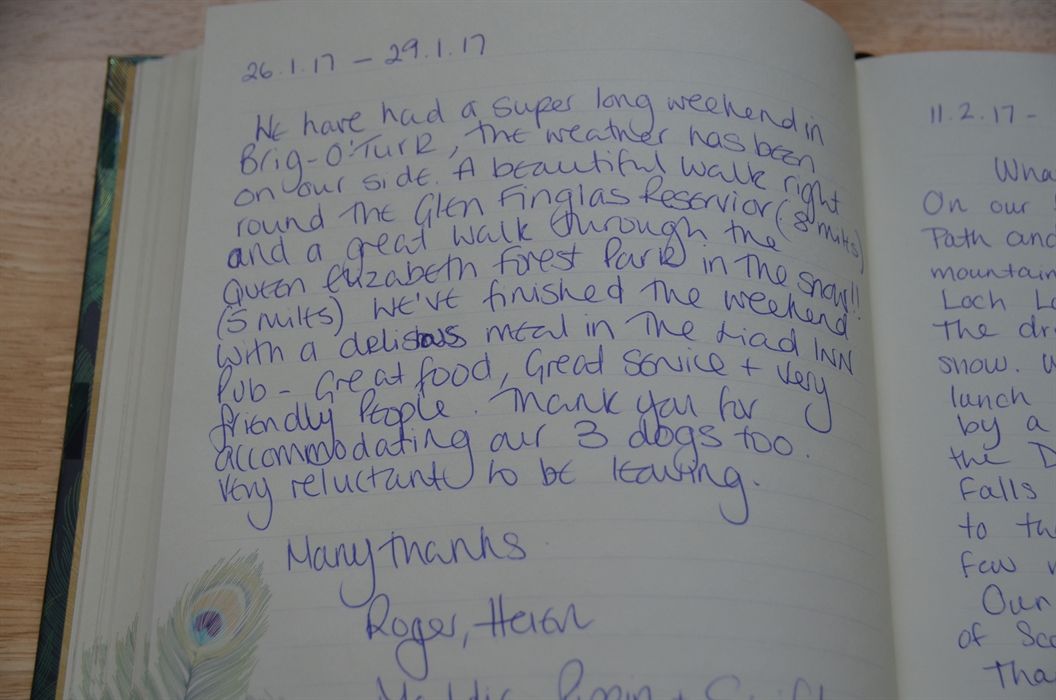 26.1.17 – 29.1.17
We have had a super long weekend in
Brig-O'Turk, The weather has been
on our side. A beautiful walk right
round The Glen Finglas Reservior (8 miles)
and a great walk through the
Queen Elizabeth Forest Park in The snow!!
(5 miles) We've finished The weekend
with a delisious meal in The Liad INN
Pub – Great food, Great service + very
friendly People. Thank you for
accommodating our 3 dogs too.
Very reluctant to be leaving.
Many thanks
Roger, Helen
11.2.17 -
On our
Path and
mountain
Loch
The
snow.
lunch
by a
the
Falls
to
few
Our
of